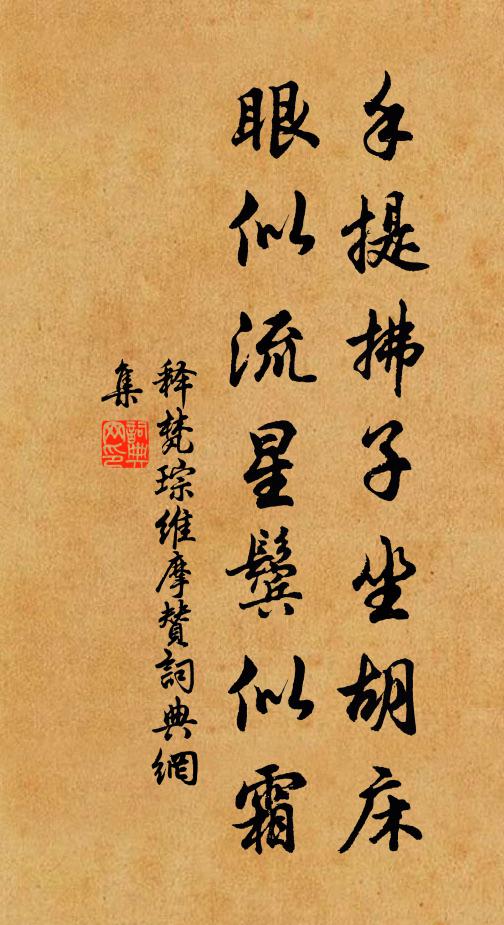 手提拂子坐胡床
眼似流星鬓似霜
释梵琮维摩赞詞典網
集
詞典
网印